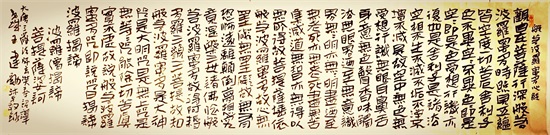 般若波羅蜜多心經
觀自在菩薩行深般若
波羅蜜多時照見五蘊
皆空度一切苦厄舍利子
色不異空空不異色色即是
空空即是色受想行識亦
復如是舍利子是諸法
空相不生不滅不垢不淨不
增不減是故空中無色無
受想行識無眼耳鼻舌
身意無色聲香味觸
法無眼界乃至無意識
界無無明亦無無明盡乃
至無老死亦無老死盡
無苦集滅道無智亦無得以
無所得故菩提薩埵依
般若波羅蜜多故心無罣
礙無罣礙故無有恐怖
遠離顛倒夢想究
竟涅槃三世諸佛依
般若波羅蜜多故得阿耨
多羅三藐三菩提故知
般若波羅蜜多是大神
咒是大明咒是無上咒是
無等等咒能除一切苦真
實不虛故說般若波羅
蜜多咒即說咒曰揭諦
揭諦
波羅揭諦
波羅僧揭諦
菩提薩婆訶
大唐三藏法師玄奘奉詔譯